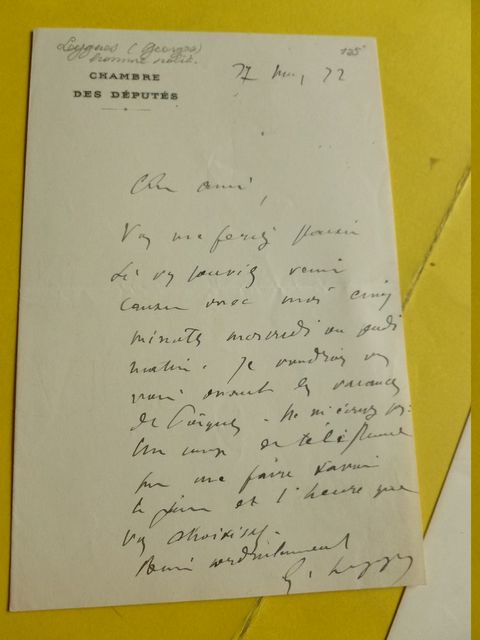 Leygues (Georges)
homme polit.
125
CHAMBRE
DES DÉPUTÉS
27 22
Cher ami,
Vs me feriez plaisir
si vs pouviez venir
causer avec moi cinq
minutes mercredi ou jeudi
matin. Je voudrais vs
voir avant les vacances
de Pâques. Ne m'écrivez pas.
Un coup de téléphone
pr me faire savoir
le jour et l'heure que
vs choisissez.
Bien cordialement
G. Leygues